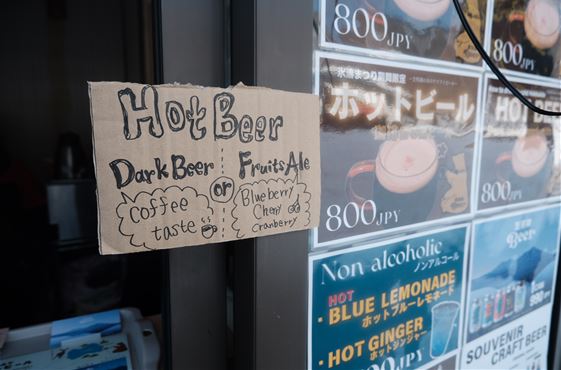 Hot Beer
Dark Beer or Fruits Ale
Coffee
taste
Blueberry
Chery
Cranberry
800JPY
800
氷濤まつり期間限定
ホットビール
800JPY
HOT BEER
800JPY
Non alcoholic
ノンアルコール
HOT
・BLUE LEMONADE
ホットブルーレモネード
・HOT GINGER
ホットジンジャー
JPY
Beer
990
SOUVENIR
CRAFT BEER